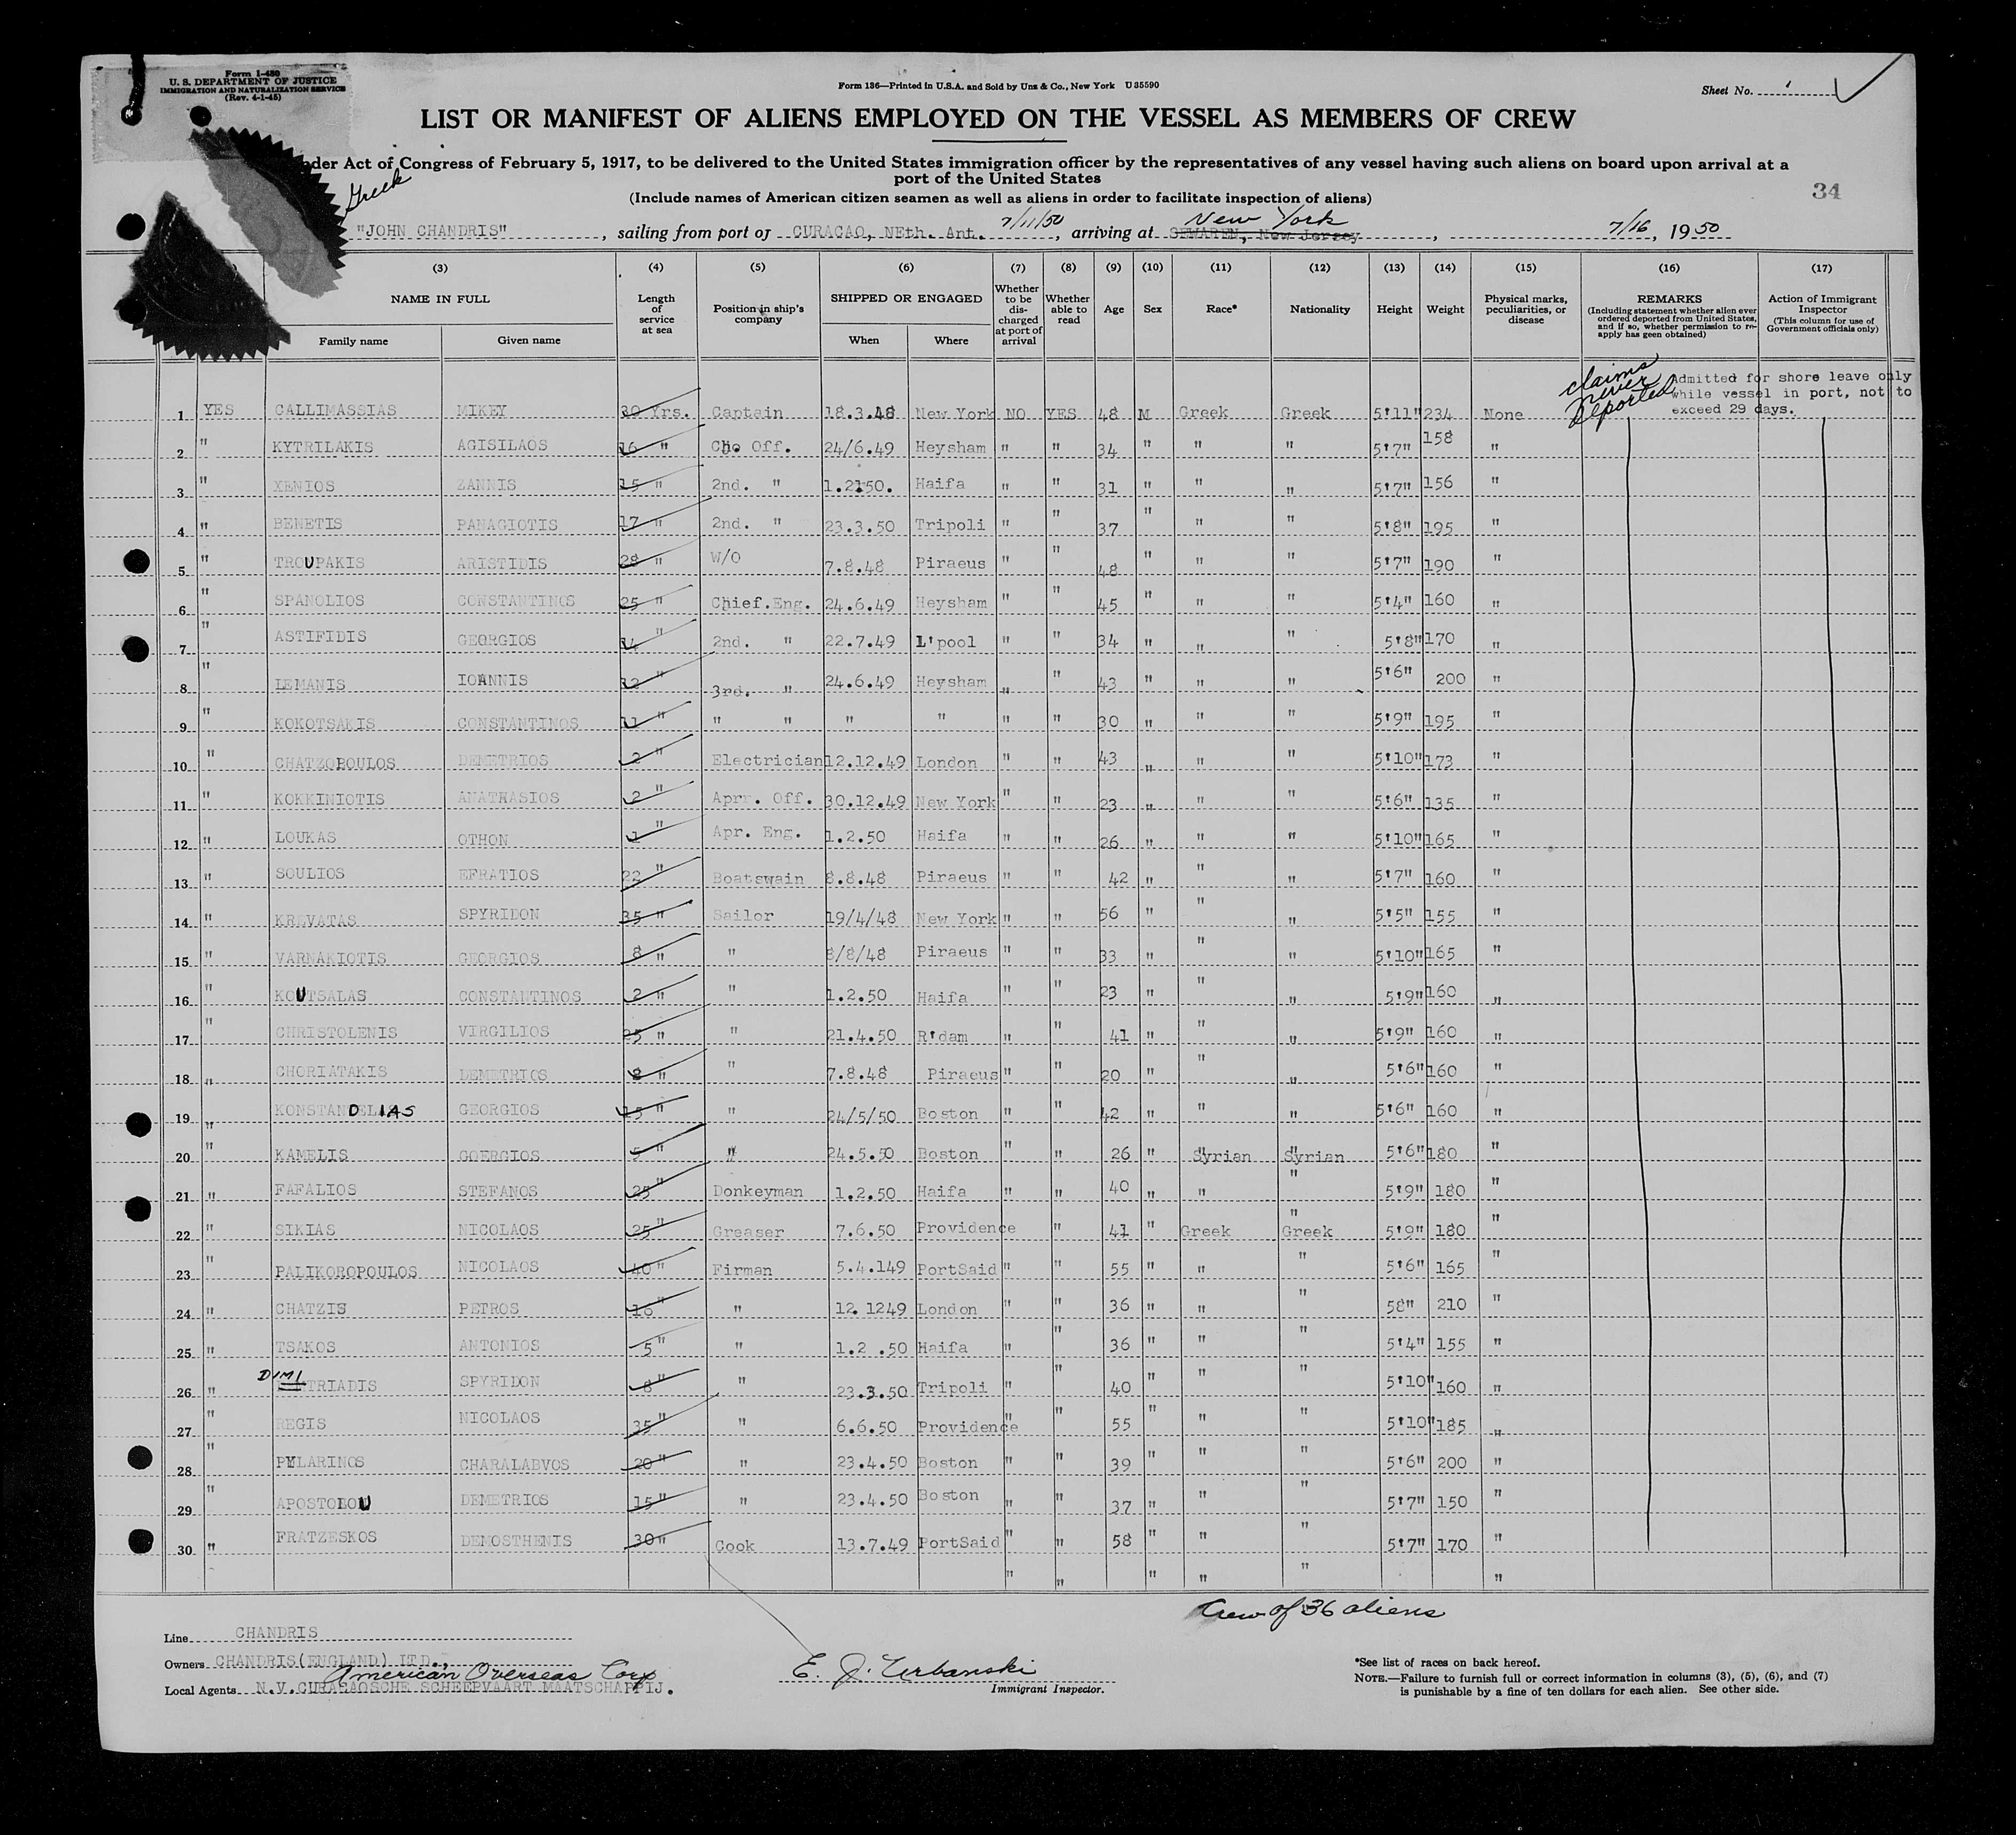 Form I-480
U. S. DEPARTMENT OF JUSTICE
IMMIGRATION AND NATURALIZATION SERVICE
(Rev. 4-1-45)
Form 136—Printed in U.S.A. and Sold by Unz & Co., New York U 35590
Sheet No. 1
LIST OR MANIFEST OF ALIENS EMPLOYED ON THE VESSEL AS MEMBERS OF CREW
nder Act of Congress of February 5, 1917, to be delivered to the United States immigration officer by the representatives of any vessel having such aliens on board upon arrival at a
port of the United States
(Include names of American citizen seamen as well as aliens in order to facilitate inspection of aliens)
34
Greek
"JOHN CHANDRIS", sailing from port of CURACAO, NEth. Ant. 7/11/50, arriving at SEWAREN, New Jersey New York, 7/16, 1950
(3) (4) (5) (6) (7) (8) (9) (10) (11) (12) (13) (14) (15) (16) (17)
NAME IN FULL Family name Given name
Length of service at sea
Position in ship's company
SHIPPED OR ENGAGED When Where
Whether to be discharged at port of arrival
Whether able to read
Age Sex Race* Nationality Height Weight
Physical marks, peculiarities, or disease
REMARKS
(Including statement whether alien ever ordered deported from United States, and if so, whether permission to re-apply has geen obtained)
Action of Immigrant Inspector
(This column for use of Government officials only)
claims never deported
Admitted for shore leave only
while vessel in port, not to
exceed 29 days.
1 YES CALLIMASSIAS MIKEY 30 Yrs. Captain 18.3.48 New York NO YES 48 M Greek Greek 5'11" 234 None
2 " KYTRILAKIS AGISILAOS 16 " Che Off. 24/6.49 Heysham " " 34 " " " 5'7" 158 "
3 " XENIOS ZANNIS 15 " 2nd. " 1.2150. Haifa " " 31 " " " 5'7" 156 "
4 " BENETIS PANAGIOTIS 17 " 2nd. " 23.3.50 Tripoli " " 37 " " " 5'8" 195 "
5 " TROUPAKIS ARISTIDIS 28 " W/O 7.8.48 Piraeus " " 48 " " " 5'7" 190 "
6 " SPANOLIOS CONSTANTINOS 25 " Chief.Eng. 24.6.49 Heysham " " 45 " " " 5'4" 160 "
7 " ASTIFIDIS GEORGIOS 14 " 2nd. " 22.7.49 L'pool " " 34 " " " 5'8" 170 "
8 " LEMANIS IOANNIS 12 " 3rd. " 24.6.49 Heysham " " 43 " " " 5'6" 200 "
9 " KOKOTSAKIS CONSTANTINOS 11 " " " " " " " 30 " " " 5'9" 195 "
10 " CHATZOPOULOS DEMETRIOS 2 " Electrician 12.12.49 London " " 43 " " " 5'10" 173 "
11 " KOKKINIOTIS ANATHASIOS 2 " Aprr. Off. 30.12.49 New York " " 23 " " " 5'6" 135 "
12 " LOUKAS OTHON 1 " Apr. Eng. 1.2.50 Haifa " " 26 " " " 5'10" 165 "
13 " SOULIOS EFRATIOS 22 " Boatswain 8.8.48 Piraeus " " 42 " " " 5'7" 160 "
14 " KREVATAS SPYRIDON 35 " Sailor 19/4/48 New York " " 56 " " " 5'5" 155 "
15 " VARNAKIOTIS GEORGIOS 8 " " 8/8/48 Piraeus " " 33 " " " 5'10" 165 "
16 " KOUTSALAS CONSTANTINOS 2 " " 1.2.50 Haifa " " 23 " " " 5'9" 160 "
17 " CHRISTOLENIS VIRGILIOS 25 " " 21.4.50 R'dam " " 41 " " " 5'9" 160 "
18 " CHORIATAKIS DEMETRIOS 2 " " 7.8.48 Piraeus " " 20 " " " 5'6" 160 "
19 " KONSTANDELIAS GEORGIOS 15 " " 24/5/50 Boston " " 42 " " " 5'6" 160 "
20 " KAMELIS GOERGIOS 5 " " 24.5.50 Boston " " 26 " Syrian Syrian 5'6" 180 "
21 " FAFALIOS STEFANOS 25 " Donkeyman 1.2.50 Haifa " " 40 " " " 5'9" 180 "
22 " SIKIAS NICOLAOS 25 " Greaser 7.6.50 Providence " 41 " Greek Greek 5'9" 180 "
23 " PALIKOROPOULOS NICOLAOS 40 " Firman 5.4.149 PortSaid " " 55 " " " 5'6" 165 "
24 " CHATZIS PETROS 16 " " 12 1249 London " " 36 " " " 58" 210 "
25 " TSAKOS ANTONIOS 5 " " 1.2 .50 Haifa " " 36 " " " 5'4" 155 "
26 " DIMITRIADIS SPYRIDON 8 " " 23.3.50 Tripoli " " 40 " " " 5'10" 160 "
27 " REGIS NICOLAOS 35 " " 6.6.50 Providence " " 55 " " " 5'10" 185 "
28 " PYLARINOS CHARALABVOS 20 " " 23.4.50 Boston " " 39 " " " 5'6" 200 "
29 " APOSTOLOU DEMETRIOS 15 " " 23.4.50 Boston " " 37 " " " 5'7" 150 "
30 " FRATZESKOS DEMOSTHENIS 30 " Cook 13.7.49 PortSaid " " 58 " " " 5'7" 170 "
" " " " " "
Crew of 36 aliens
Line CHANDRIS
Owners CHANDRIS(ENGLAND) LTD.,
American Overseas Corp
Local Agents N.V.CURACAOSCHE SCHEEPVAART MAATSCHAPPIJ.
E. J. Urbanski
Immigrant Inspector.
*See list of races on back hereof.
NOTE.—Failure to furnish full or correct information in columns (3), (5), (6), and (7)
is punishable by a fine of ten dollars for each alien. See other side.